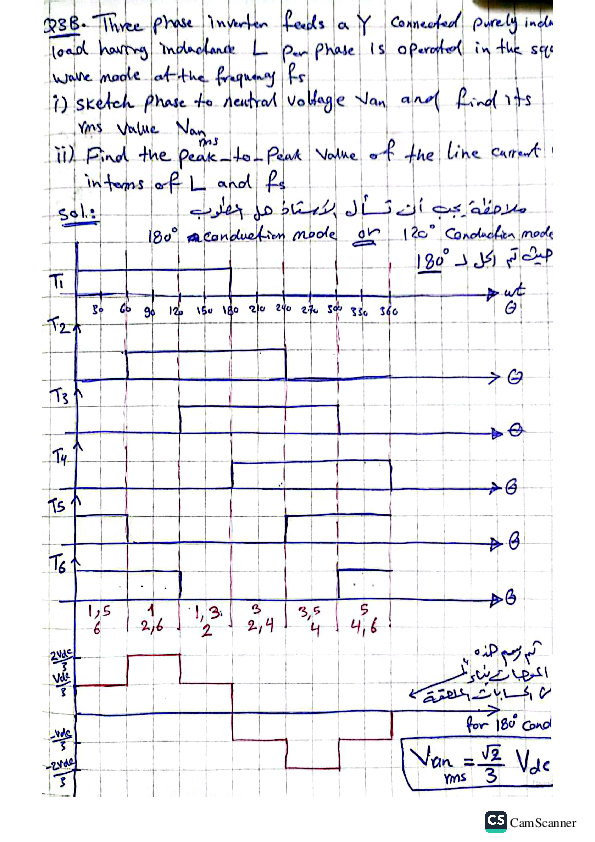 Q3B. Three phase inverter feeds a Y connected purely indu
load having inductance L per phase is operated in the squ
wave mode at the frequency fs
i) sketch phase to neutral voltage Van and find its
rms value Van rms
ii) Find the peak_to_Peak value of the line current
interms of L and fs
Sol.: ملاحظة يجب ان تسأل الاستاذ هل المطلوب
180° conduction mode or 120° Conduction mode
حيث تم الحل لـ 180°
T1
30 60 90 120 150 180 210 240 270 300 330 360 wt
θ
T2
θ
T3
θ
T4
θ
T5
θ
T6
θ
1,5 1 1,3 3 3,5 5
6 2,6 2 2,4 4 4,6
2Vdc/3
Vdc/3
تم رسم هذه
الموجات بناءً
الحسابات
for 180° cond
-Vdc/3
-2Vdc/3
Van rms = √2/3 Vdc
CS CamScanner